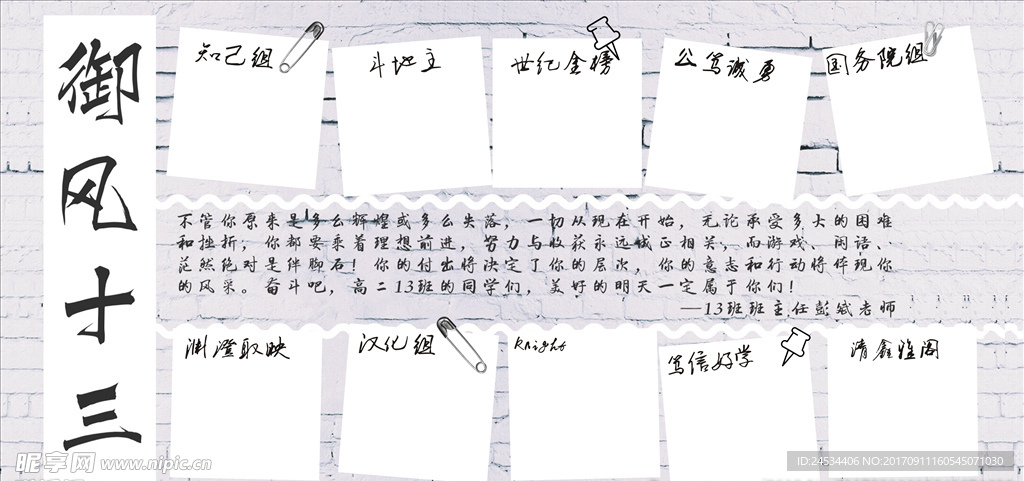 御风十三
知己组
斗地主
世纪金榜
公笃诚勇
国务院组
不管你原来是多么辉煌或多么失落，一切从现在开始，无论承受多大的困难
和挫折，你都要乘着理想前进，努力与收获永远城正相关，而游戏、闲话、
范然绝对是伴脚石！你的付出将决定了你的层次，你的意志和行动将体现你
的风采。奋斗吧，高二13班的同学们，美好的明天一定属于你们！
—13班班主任彭斌老师
渊澄取映
汉化组
Knight
笃信好学
清鑫雅阁
昵享网 www.nipic.cn
ID:24534406 NO:20170911160545071030